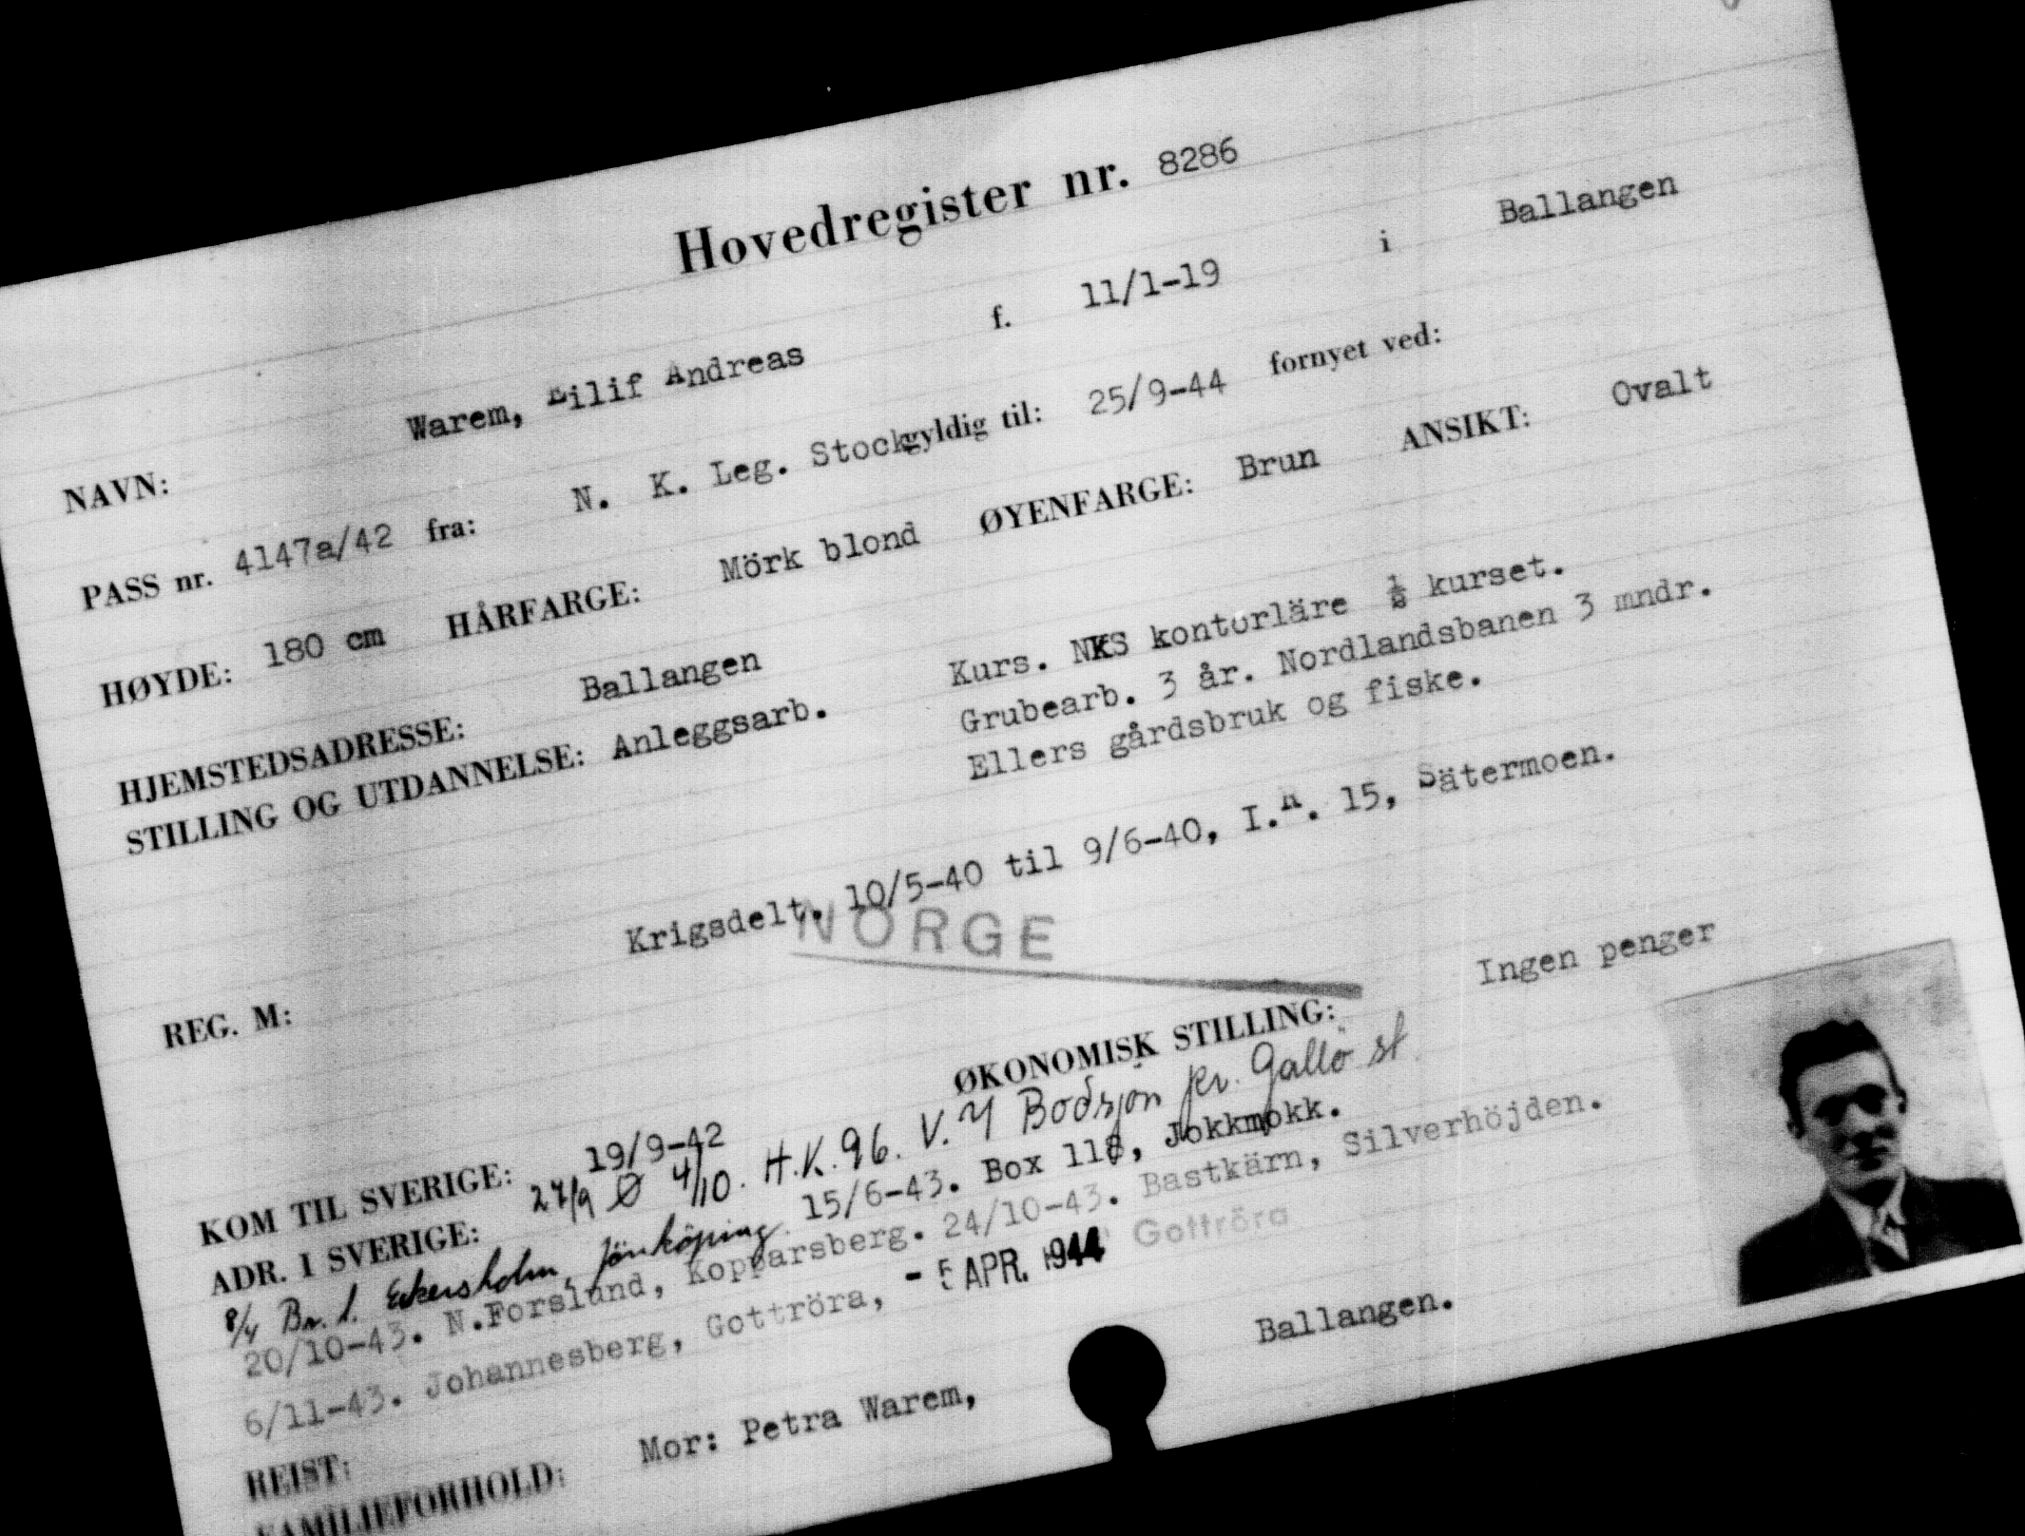 Hovedregister nr. 8286
NAVN: Warem, Eilif Andreas f. 11/1-19 i Ballangen
PASS nr. 4147a/42 fra: N. K. Leg. Stock gyldig til: 25/9-44 fornyet ved:
HØYDE: 180 cm HÅRFARGE: Mörk blond ØYENFARGE: Brun ANSIKT: Ovalt
HJEMSTEDSADRESSE: Ballangen
STILLING OG UTDANNELSE: Anleggsarb. Kurs. NKS kontorläre ½ kurset.
Grubearb. 3 år. Nordlandsbanen 3 mndr.
Ellers gårdsbruk og fiske.
Krigsdelt. 10/5-40 til 9/6-40, I.R. 15, Sätermoen.
NORGE
REG. M:
ØKONOMISK STILLING: Ingen penger
KOM TIL SVERIGE: 19/9-42
ADR. I SVERIGE: 27/9 Ø 4/10. H.K. 96. V. Bodsjön pr. Gällö st.
8/4 Br. l. Ekersholm, Jönköping. 15/6-43. Box 118, Jokkmokk.
20/10-43. N.Forslund, Kopparsberg. 24/10-43. Bastkärn, Silverhöjden.
6/11-43. Johannesberg, Gottröra, - 5 APR. 1944 Gottröra
REIST:
FAMILIEFORHOLD: Mor: Petra Warem, Ballangen.